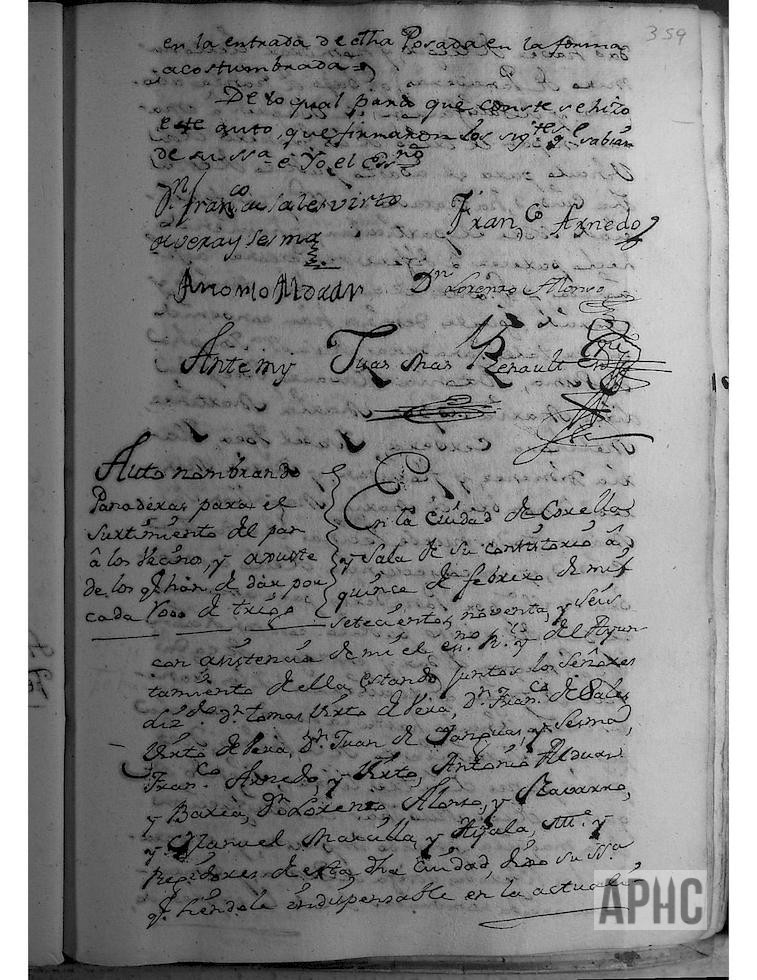 359
en la entrada de dha Posada en la forma
acostumbrada
De lo qual para que conste se hizo
este auto, que firmaron los sigtes qe sabian
de su ssa e Yo el Essno
Dn Franco de Sales Virto
de vera y sesma
Franco Arnedo
Antonio Alduan
Dn Lorenzo Alonso
Antemy Juan Renault
Auto nombrando
Panaderas para el
surtimiento del pan
â los vecinos, y apunte
de los qe han de dar por
cada Robo de trigo
En la ciudad de Corella
y Sala de su consistorio â
quince de febrero de mil
setecientos noventa, y seis
con asistencia de mi el essno Rl y del Ayun
tamiento de ella, estando juntos los Señores
Dn tomas Virto de Vera, Dn Franco de Sales
Virto de Vera, Dn Juan de y Sesma,
Franco Arnedo, y Virto, Antonio Alduan
y Dn Lorenzo Alonso, y Navarro,
y Manuel Marcilla, y Ayala, y
Regidores de esta dha Ciudad, dixo su ssa
qe siendole indispensable en la actuali
APHC